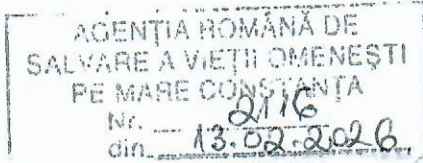 AGENȚIA ROMÂNĂ DE
SALVARE A VIEȚII OMENEȘTI
PE MARE CONSTANȚA
Nr. 2116
din 13.02.2026